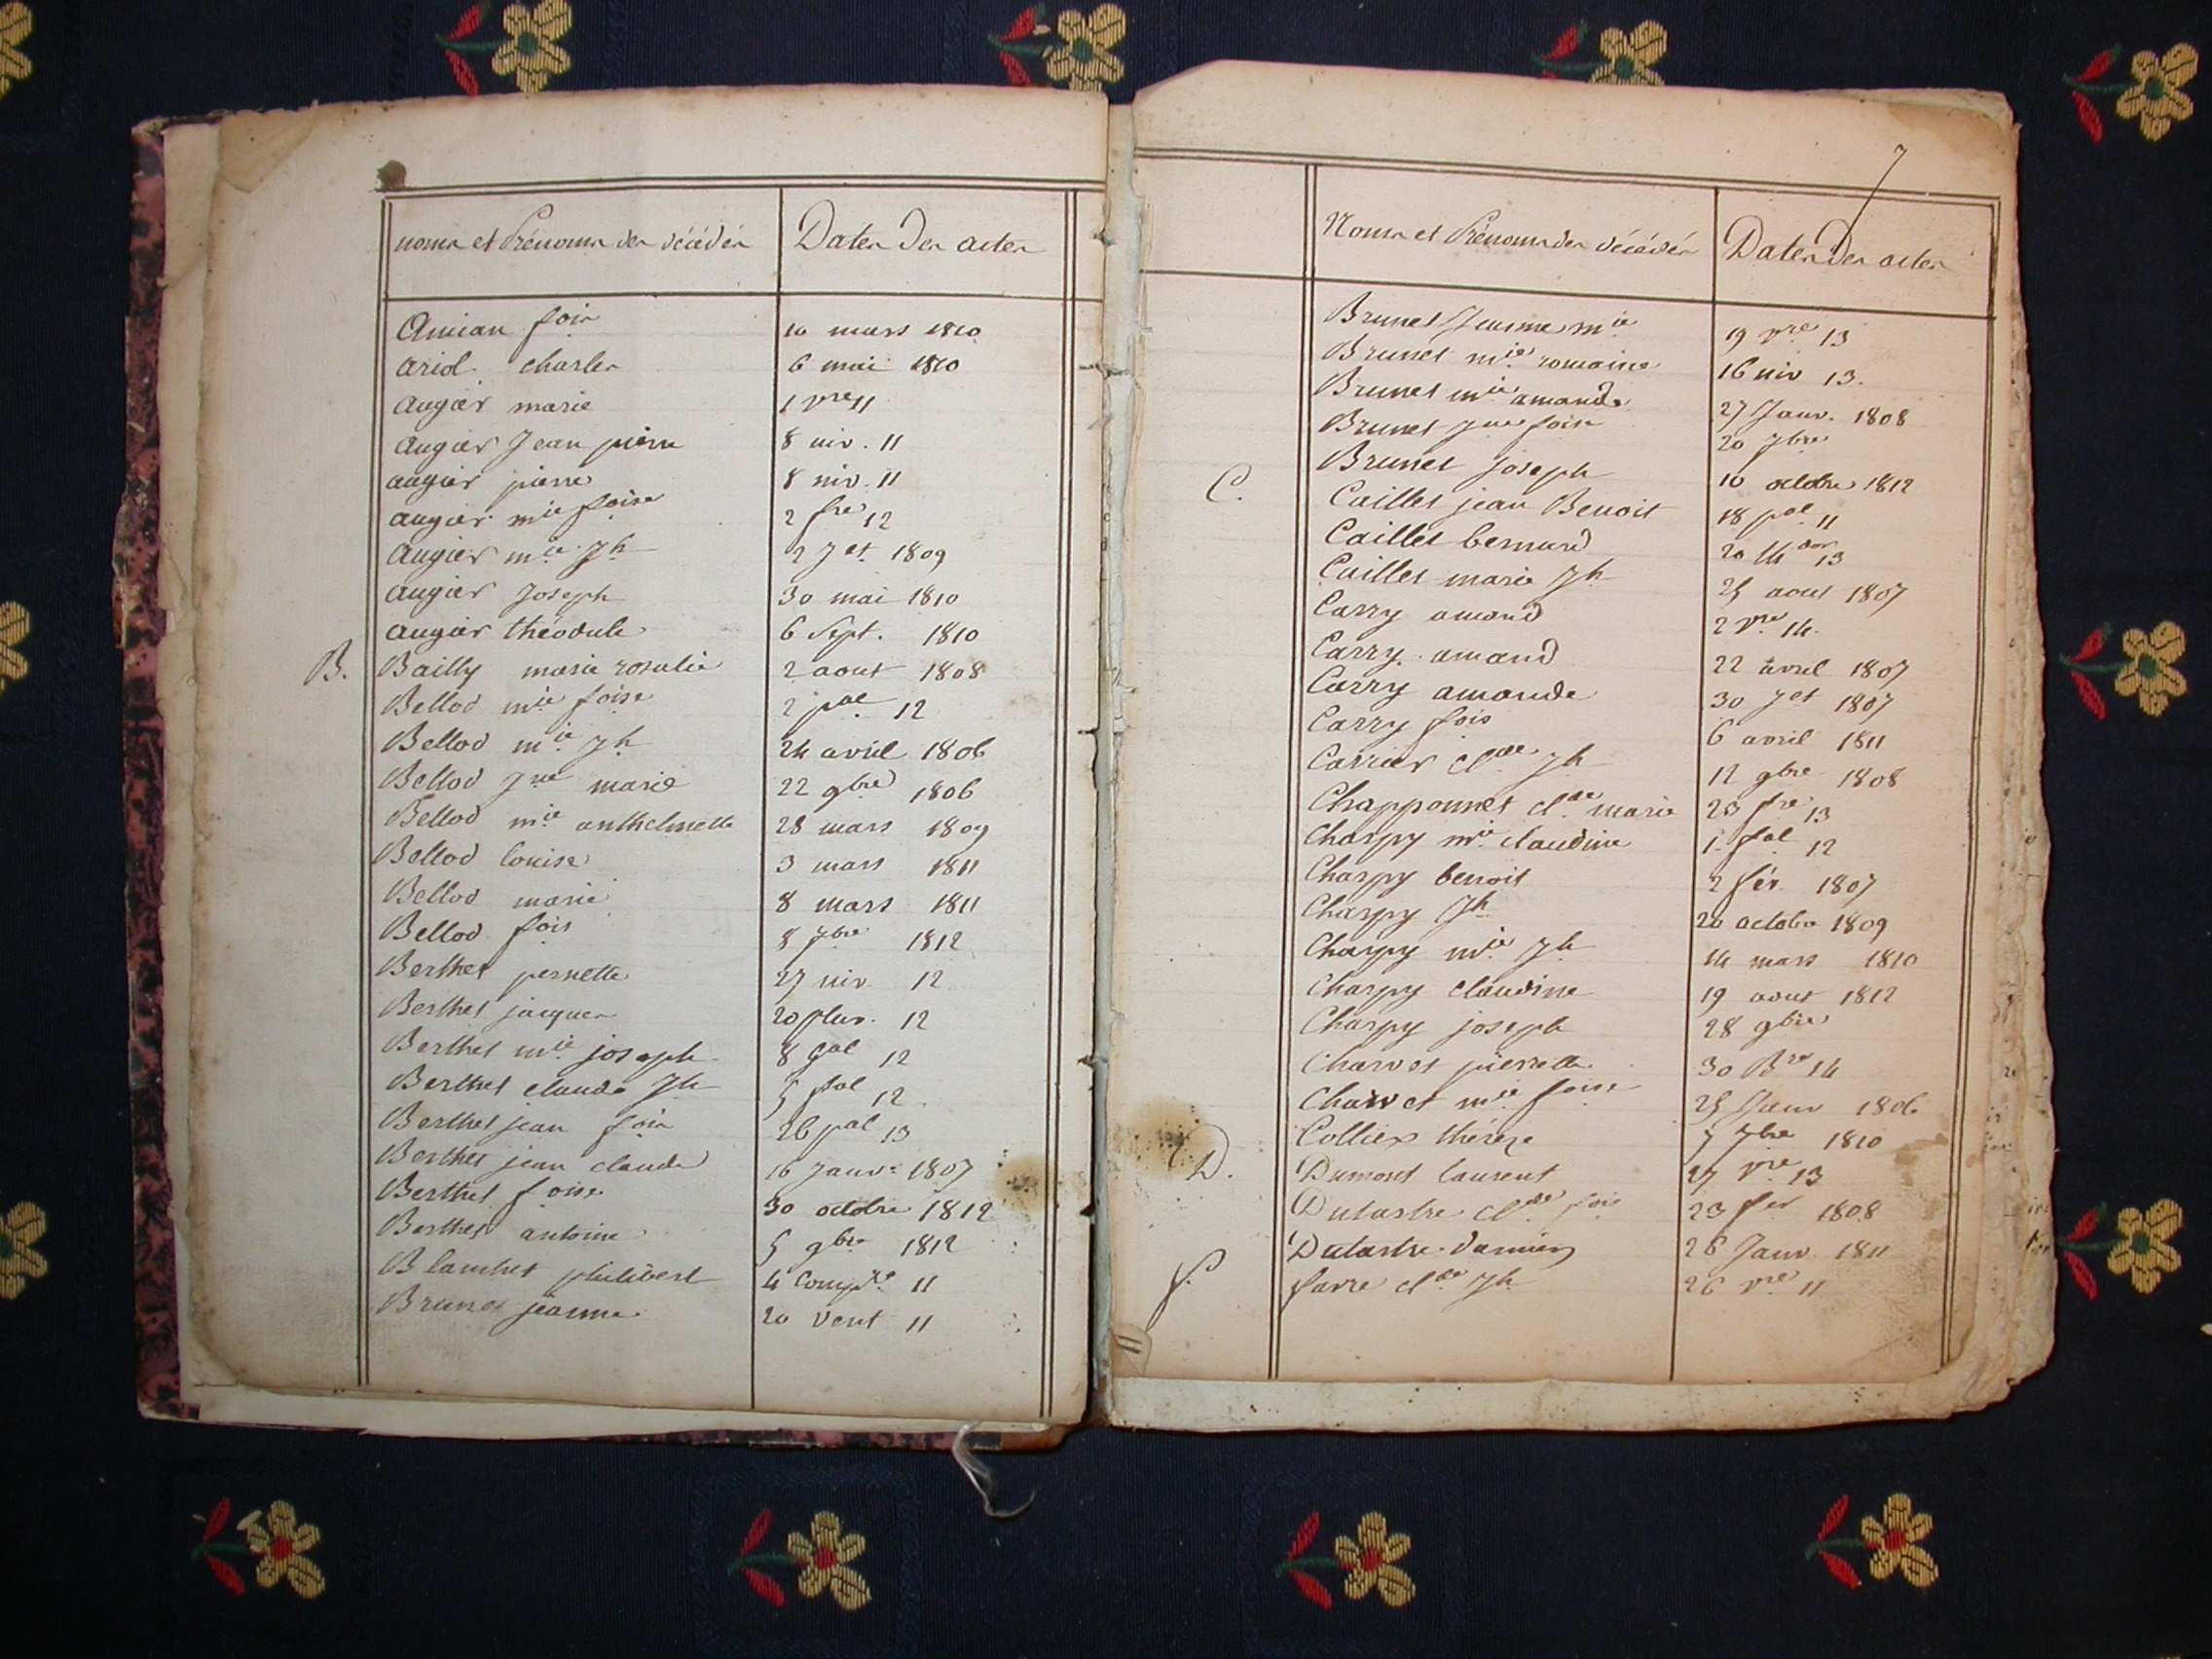 noms et Prénoms des décédés Dates des actes
Amian fois 10 mars 1810
ariol charles 6 mai 1810
augier marie 1 vre 11
augier Jean pierre 8 niv. 11
augier pierre 8 niv. 11
augier mie foise 2 fre 12
augier mie Jh 2 Jet 1809
augier Joseph 30 mai 1810
augier théodule 6 Sept. 1810
B. Bailly marie rosalie 2 aout 1808
Bellod mie foise 2 pal 12
Bellod mie Jh 24 avril 1806
Bellod Jne marie 22 9bre 1806
Bellod mie anthelmette 28 mars 1809
Bellod louise 3 mars 1811
Bellod marie 8 mars 1811
Bellod fois 8 7bre 1812
Berthet pernette 27 niv 12
Berthet jacques 20 pluv. 12
Berthet mie joseph 8 gal 12
Berthet claude Jh 5 fal 12
Berthet jean fois 26 pal 13
Berthet jean claude 16 Janv. 1807
Berthet foise 30 octobre 1812
Berthet antoine 5 9bre 1812
Blanchet philibert 4 Compre 11
Brunet jeanne 20 Vent 11
7
Noms et Prénoms des décédés Dates des actes
Brunet Jeanne mie 19 vre 13
Brunet mie romaine 16 niv 13.
Brunet mie amande 27 Janv. 1808
Brunet Jne foise 20 7bre
Brunet joseph 10 octobre 1812
C. Caillet jean Benoit 18 pal 11
Caillet bernard 20 thdor 13
Caillet marie Jh 25 aout 1807
Carry amand 2 vre 14.
Carry amand 22 avril 1807
Carry amande 30 Jet 1807
Carry fois 6 avril 1811
Carrier clde Jh 12 9bre 1808
Chapponnet clde marie 23 fre 13
Charpy mie claudine 1 fal 12
Charpy benoit 2 fév. 1807
Charpy Jh 20 octobre 1809
Charpy mie Jh 14 mars 1810
Charpy claudine 19 aout 1812
Charpy joseph 28 9bre
Charvet pierrette 30 Bre 14
Charvet mie foise 25 Janv 1806
Collier thérèse 7 7bre 1810
D. Dumont laurent 27 vre 13
Dutartre clde fois 23 fév 1808
Dutartre damien 26 Janv. 1811
f. favre clde Jh 26 vre 11